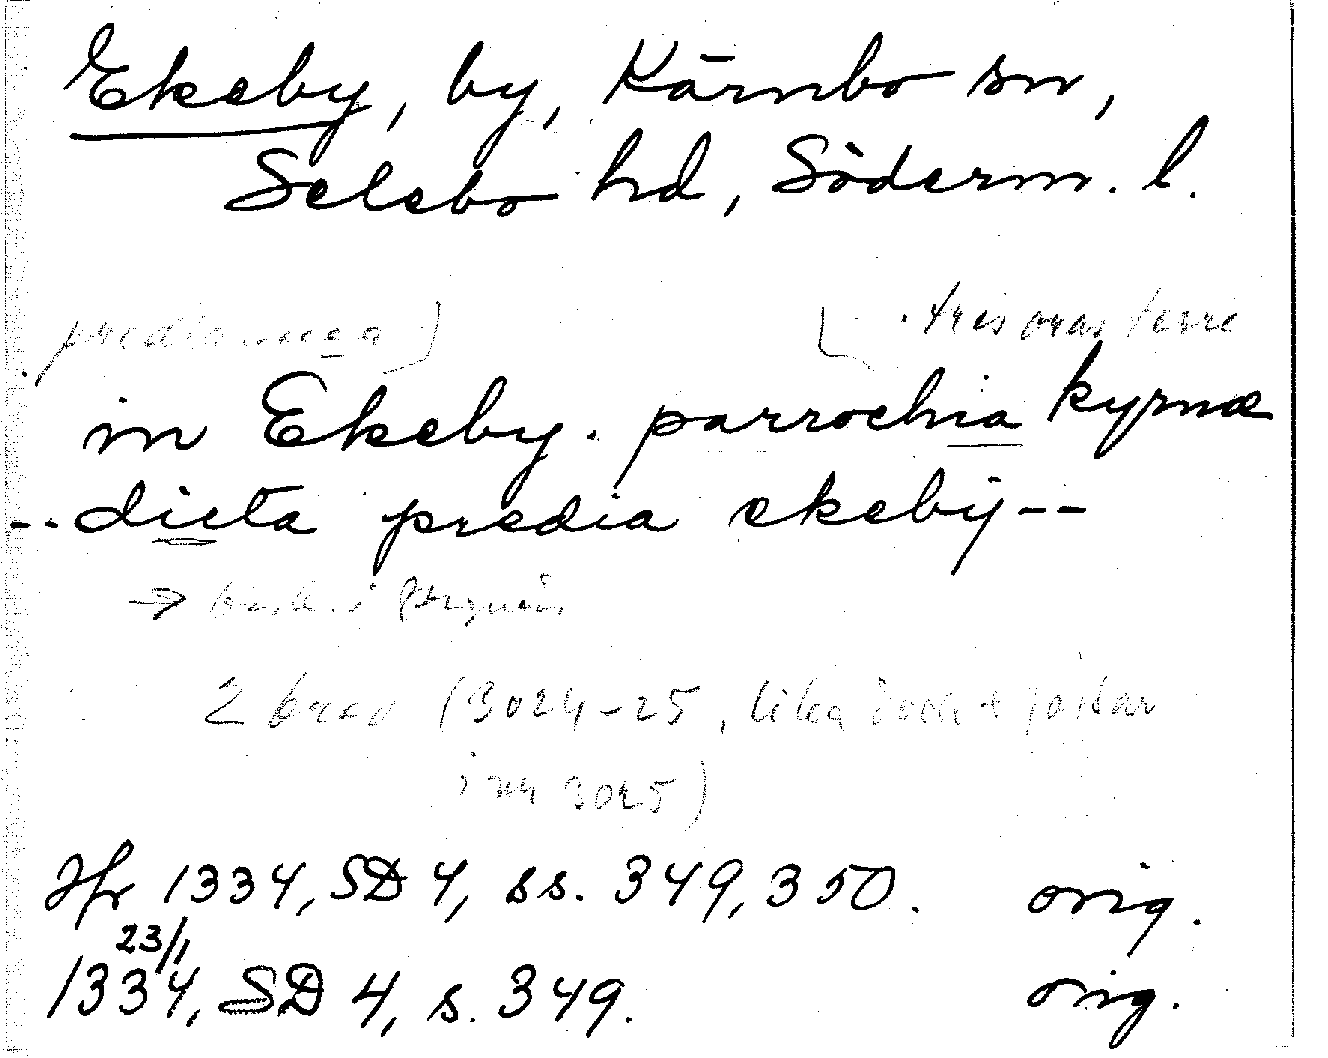 Ekeby, by, Kärnbo sn,
Selebo hd, Söderm. l.
predia mea ) . tres oras terre
in Ekeby. parrochia kyrnæ
-- dicta predia ekeby --
→ i
2 brev (3024-25, lika
i nr 3025)
Hfr 1334, SD 4, ss. 349, 350. orig.
23/1
1334, SD 4, s. 349. orig.